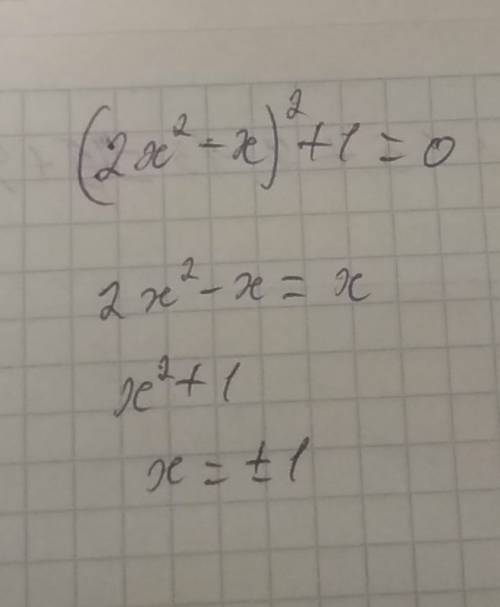 (2x² - x)² + 1 = 0
2x² - x = x
x² + 1
x = ± 1